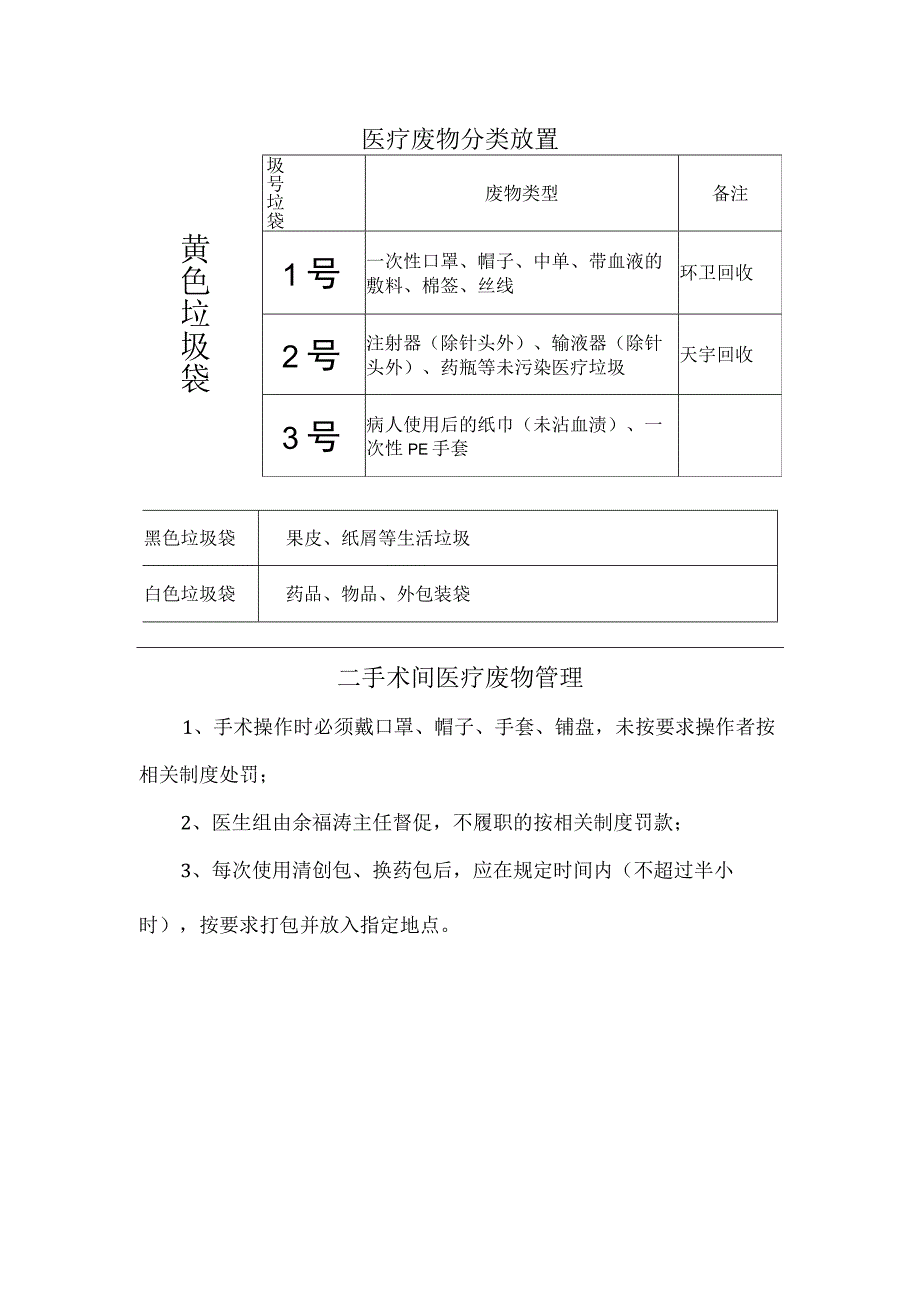 医疗废物分类放置
黄色垃圾袋
圾号垃袋
废物类型
备注
1号
一次性口罩、帽子、中单、带血液的
敷料、棉签、丝线
环卫回收
2号
注射器（除针头外）、输液器（除针
头外）、药瓶等未污染医疗垃圾
天宇回收
3号
病人使用后的纸巾（未沾血渍）、一
次性PE手套
黑色垃圾袋
果皮、纸屑等生活垃圾
白色垃圾袋
药品、物品、外包装袋
二手术间医疗废物管理
1、手术操作时必须戴口罩、帽子、手套、铺盘，未按要求操作者按
相关制度处罚；
2、医生组由余福涛主任督促，不履职的按相关制度罚款；
3、每次使用清创包、换药包后，应在规定时间内（不超过半小
时），按要求打包并放入指定地点。